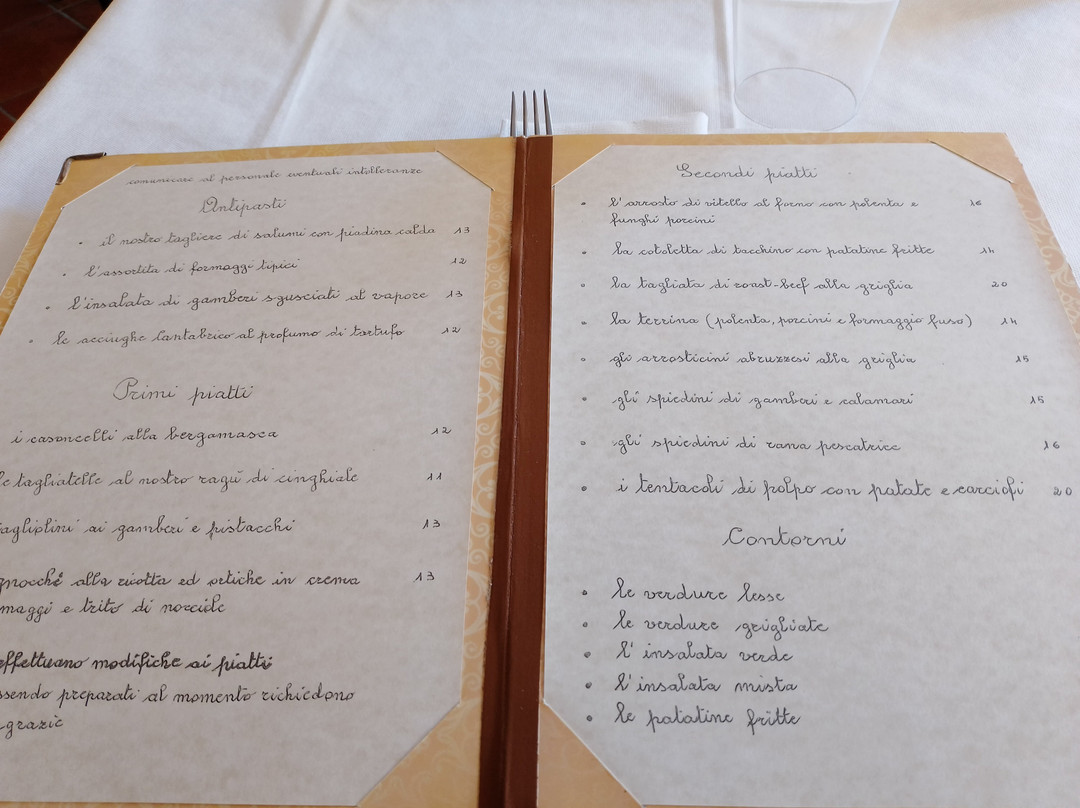 comunicare al personale eventuali intolleranze
Antipasti
• il nostro tagliere di salumi con piadina calda 13
• l'assortita di formaggi tipici 12
• l'insalata di gamberi sgusciati al vapore 13
• le acciughe Cantabrico al profumo di tartufo 12
Primi piatti
i casoncelli alla bergamasca 12
le tagliatelle al nostro ragù di cinghiale 11
tagliolini ai gamberi e pistacchi 13
gnocchi alla ricotta ed ortiche in crema 13
maggi e trito di nocciole
effettuano modifiche ai piatti
ssendo preparati al momento richiedono
grazie
Secondi piatti
• l'arrosto di vitello al forno con polenta e 16
funghi porcini
• la cotoletta di tacchino con patatine fritte 14
• la tagliata di roast-beef alla griglia 20
• la terrina (polenta, porcini e formaggio fuso) 14
• gli arrosticini abruzzesi alla griglia 15
• gli spiedini di gamberi e calamari 15
• gli spiedini di rana pescatrice 16
• i tentacoli di polpo con patate e carciofi 20
Contorni
• le verdure lesse
• le verdure grigliate
• l'insalata verde
• l'insalata mista
• le patatine fritte